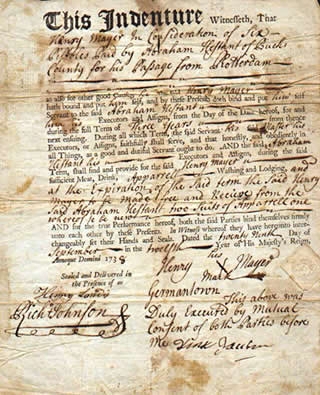 This Indenture Witnesseth, That
Henry Mayer In Consideration of Six
Pistoles Paid by Abraham Hestant of Bucks
County for his Passage from Rotterdam
as also for other good
hath bound and put himself, and by these Presents doth bind and put himself
Servant to the said Abraham Hestant
his Executors and Assigns, from the Day of the Date hereof, for and
during the full Term of Three Years
next ensuing. During all which Term, the said Servant his said Master his
Executors, or Assigns, faithfully shall serve, and that honestly and obediently in
all Things, as a good and dutiful Servant ought to do. AND the said Abraham
Hestant his Executors and Assigns, during the said
Term, shall find and provide for the said Henry Mayer
sufficient Meat, Drink, Apparrel Washing and Lodging, and
at the Expiration of the said term the said Henry
Mayer to be made free and Receive from the
Said Abraham Hestant two Suits of Apparrell one
thereof to be new
AND for the true Performance hereof, both the said Parties bind themselves firmly
unto each other by these Presents. In Witness whereof they have hereunto inter-
changeably set their Hands and Seals. Dated the Twenty Ninth Day of
September in the twelfth Year of His Majesty's Reign,
Annoque Domini 1738
Sealed and Delivered in
the Presence of us
Henry his mark Mayer
Rich Johnson
Germantown
This above was
Duly Executed by Mutual
Consent of both Parties before
Me